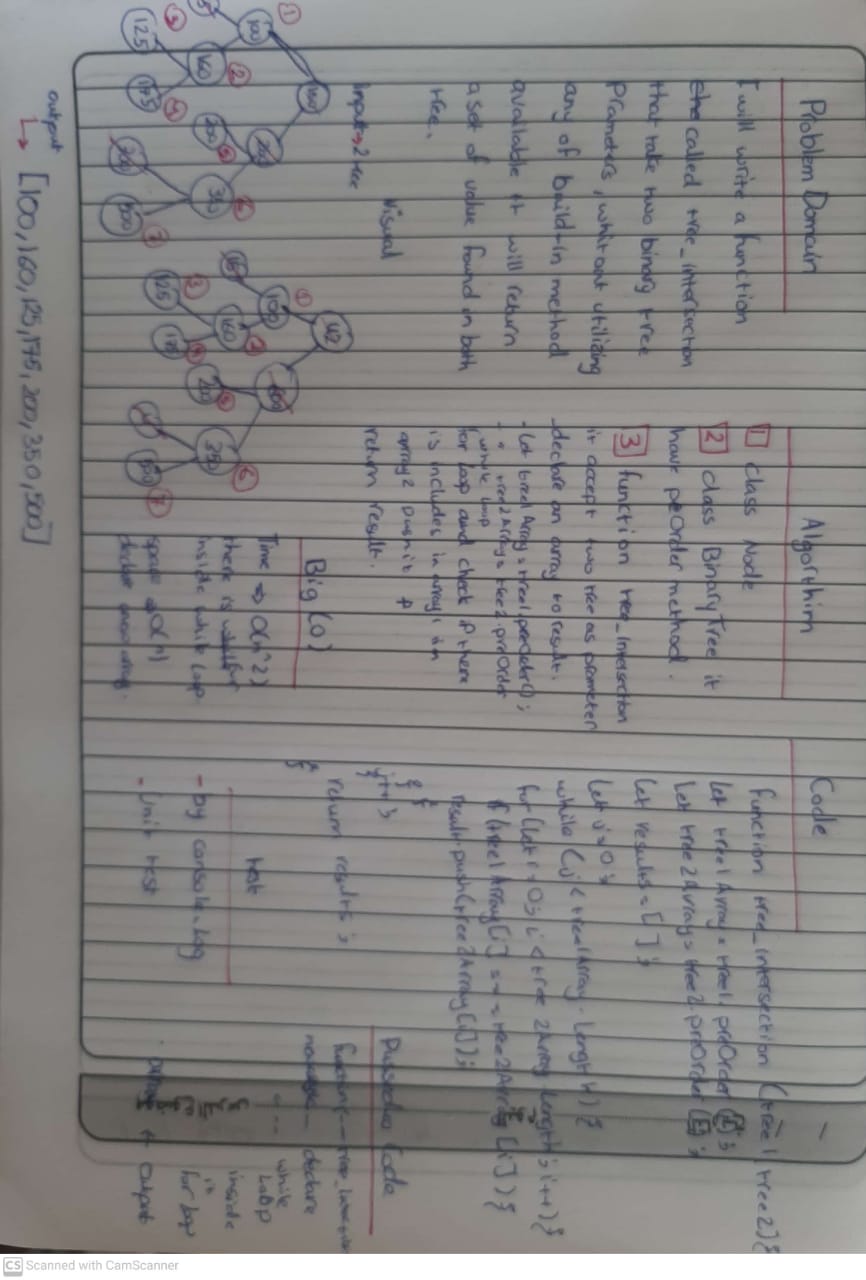 Problem Domain
I will write a function
called tree_intersection
that take two binary tree
prameters, whitout utilizing
any of build-in method
available it will return
a set of value found in both
tree.
Input → 2 tree
Visual
①
100
160
②
③
125
④
175
200
⑤
350
⑥
500
⑦
42
①
100
160
②
③
125
④
175
200
⑤
350
⑥
500
⑦
output
↳ [100,160,125,175,200,350,500]
Algorithim
1 class Node
2 class BinaryTree it
have peOrder method.
3 function tree_intersection
it accept two tree as prameter
- declare an array to result.
- let tree1Array = tree1.preOrder();
- " tree2Array = tree2.preOrder
( while loop
for loop and check if there
is includes in array1 an
array2 push it &
return result.
Big (O)
Time => O(n^2)
there is for
inside while loop.
space => O(n)
declare array.
Code
function tree_intersection (tree1, tree2){
let tree1Array = tree1.preOrder();
let tree2Array = tree2.preOrder();
let results = [ ];
let j=0;
while (j < tree1Array.length) {
for (let i=0; i < tree2Array.length; i++){
if (tree1Array[j] === tree2Array[i]){
result.push(tree2Array[i]);
}
}
j++;
}
return results;
}
test
- by console.log
- Unit test
Pussedus Code
function
declare
while
Loop
inside
it
for loop
output
CS Scanned with CamScanner